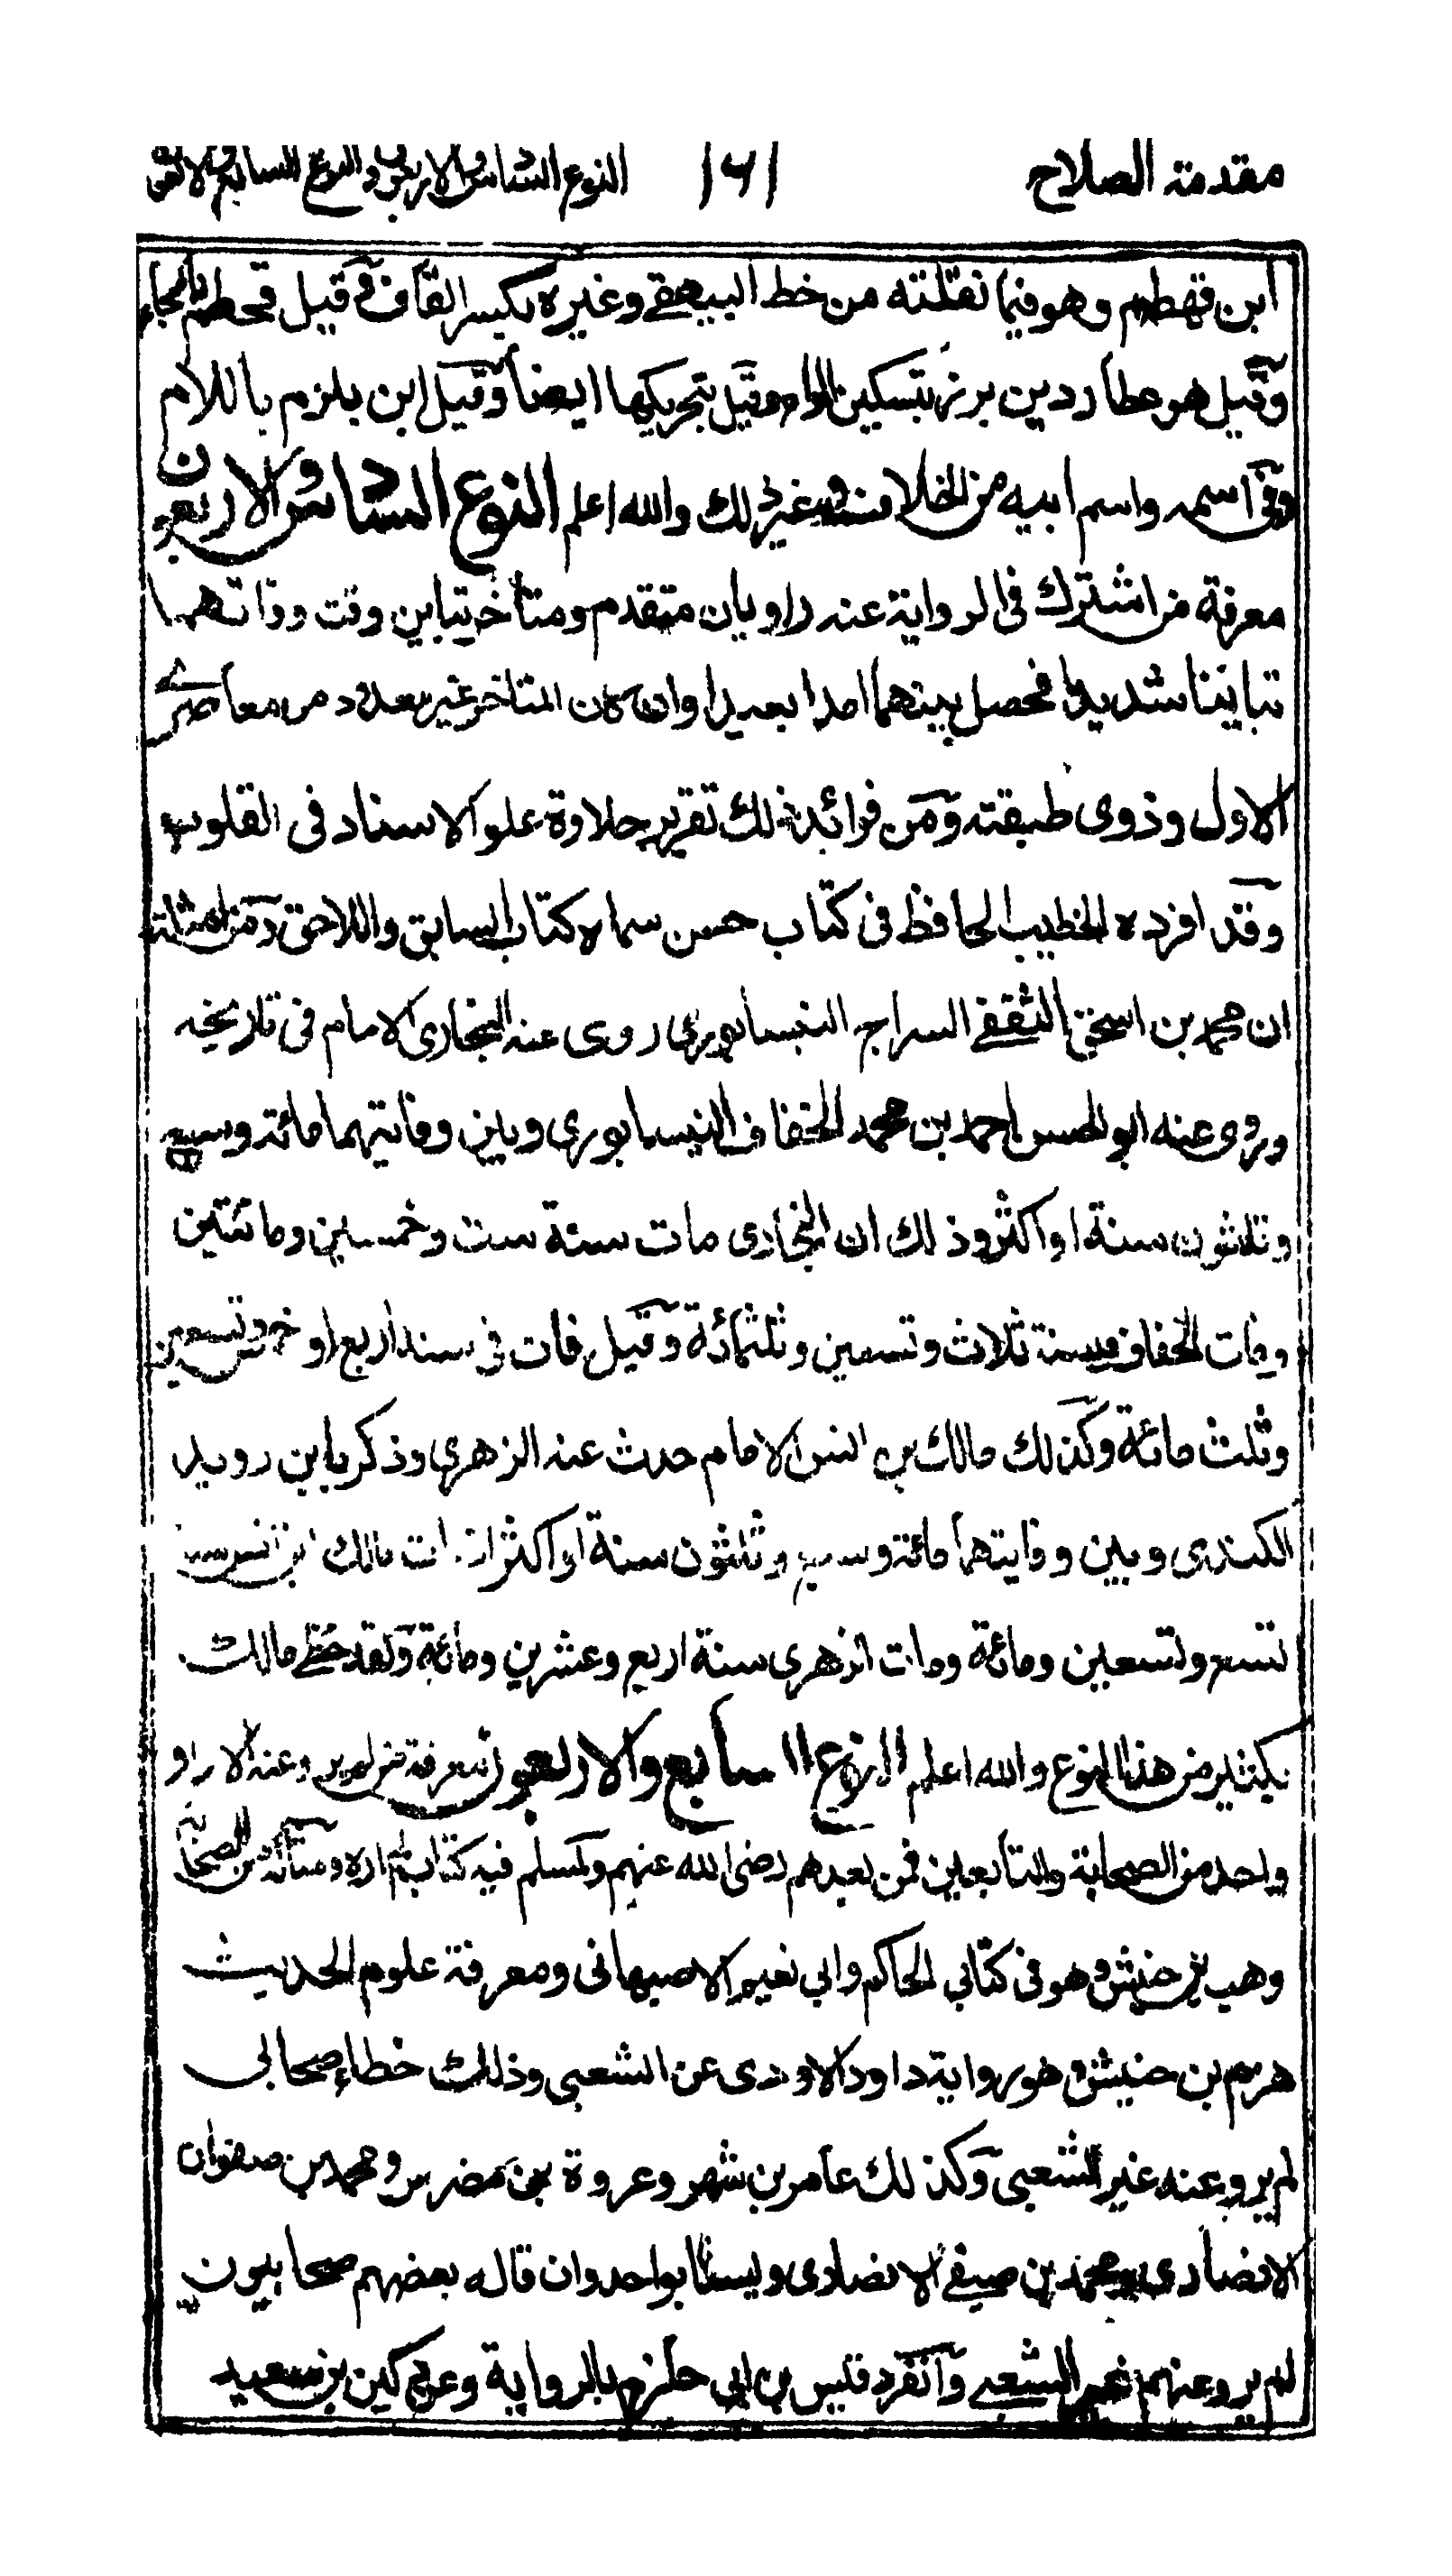 مقدمة الصلاح ١٦١ النوع السادس والاربعون والنوع السابع والاربعون
ابن قهطم وهو فيما نقلته من خط البيهقي وغيره بكسر القاف وقيل قحطم بالحاء
وقيل هو عطارد بن برز بتسكين الراء وقيل بتحريكها ايضا وقيل ابن بلزم باللام
وفى اسمه واسم ابيه من الخلاف غير ذلك والله اعلم النوع السادس والاربعون
معرفة من اشترك فى الرواية عنه راويان متقدم ومتأخر يتباين وقت وفاتهما
تباينا شديدا فحصل بينهما امدا بعيدا وان كان المتاخر غير معدود من معاصرى
الاول وذوى طبقته ومن فوائد ذلك تقرير حلاوة علو الاسناد فى القلوب
وقد افرده الخطيب الحافظ فى كتاب حسن سماه كتاب السابق واللاحق ومن امثلته
ان محمد بن اسحق الثقفي السراج النيسابوري روى عنه البخارى الامام فى تاريخه
وروى عنه ابو الحسن احمد بن محمد الخفاف النيسابوري وبين وفاتيهما مائة وسبع
وثلثون سنة او اكثر وذلك ان البخارى مات سنة ست وخمسين ومائتين
ومات الخفاف سنة ثلاث وتسعين وثلثمائة وقيل مات فى سنة اربع او خمس وتسعين
وثلث مائة وكذلك مالك بن انس الامام حدث عنه الزهري وذكريا بن دويد
الكندى وبين وفايتهما مائة وسبع وثلثون سنة او اكثر مات مالك ابن انس سنة
تسع وتسعين ومائة ومات الزهرى سنة اربع وعشرين ومائة ولقد حظي مالك
بكثير من هذا النوع والله اعلم النوع السابع والاربعون معرفة من لم يرو عنه الا راو
واحد من الصحابة والتابعين فمن بعدهم رضى الله عنهم ولمسلم فيه كتاب لم اره ومثاله من الصحابة
وهب بن خنبش وهو فى كتابي الحاكم وابي نعيم الاصبهانى ومعرفة علوم الحديث
هرم بن خنبش وهو رواية داود الاودى عن الشعبى وذلك خطاء صحابى
لم يرو عنه غير الشعبى وكذلك عامر بن شهر وعروة بن مضرس ومحمد بن صفوان
الانصارى ومحمد بن صيفي الانصارى وليسا بواحد وان قاله بعضهم صحابيون
لم يرو عنهم غير الشعبي وانفرد قيس بن ابي حازم بالرواية وعن دكين بن سعيد